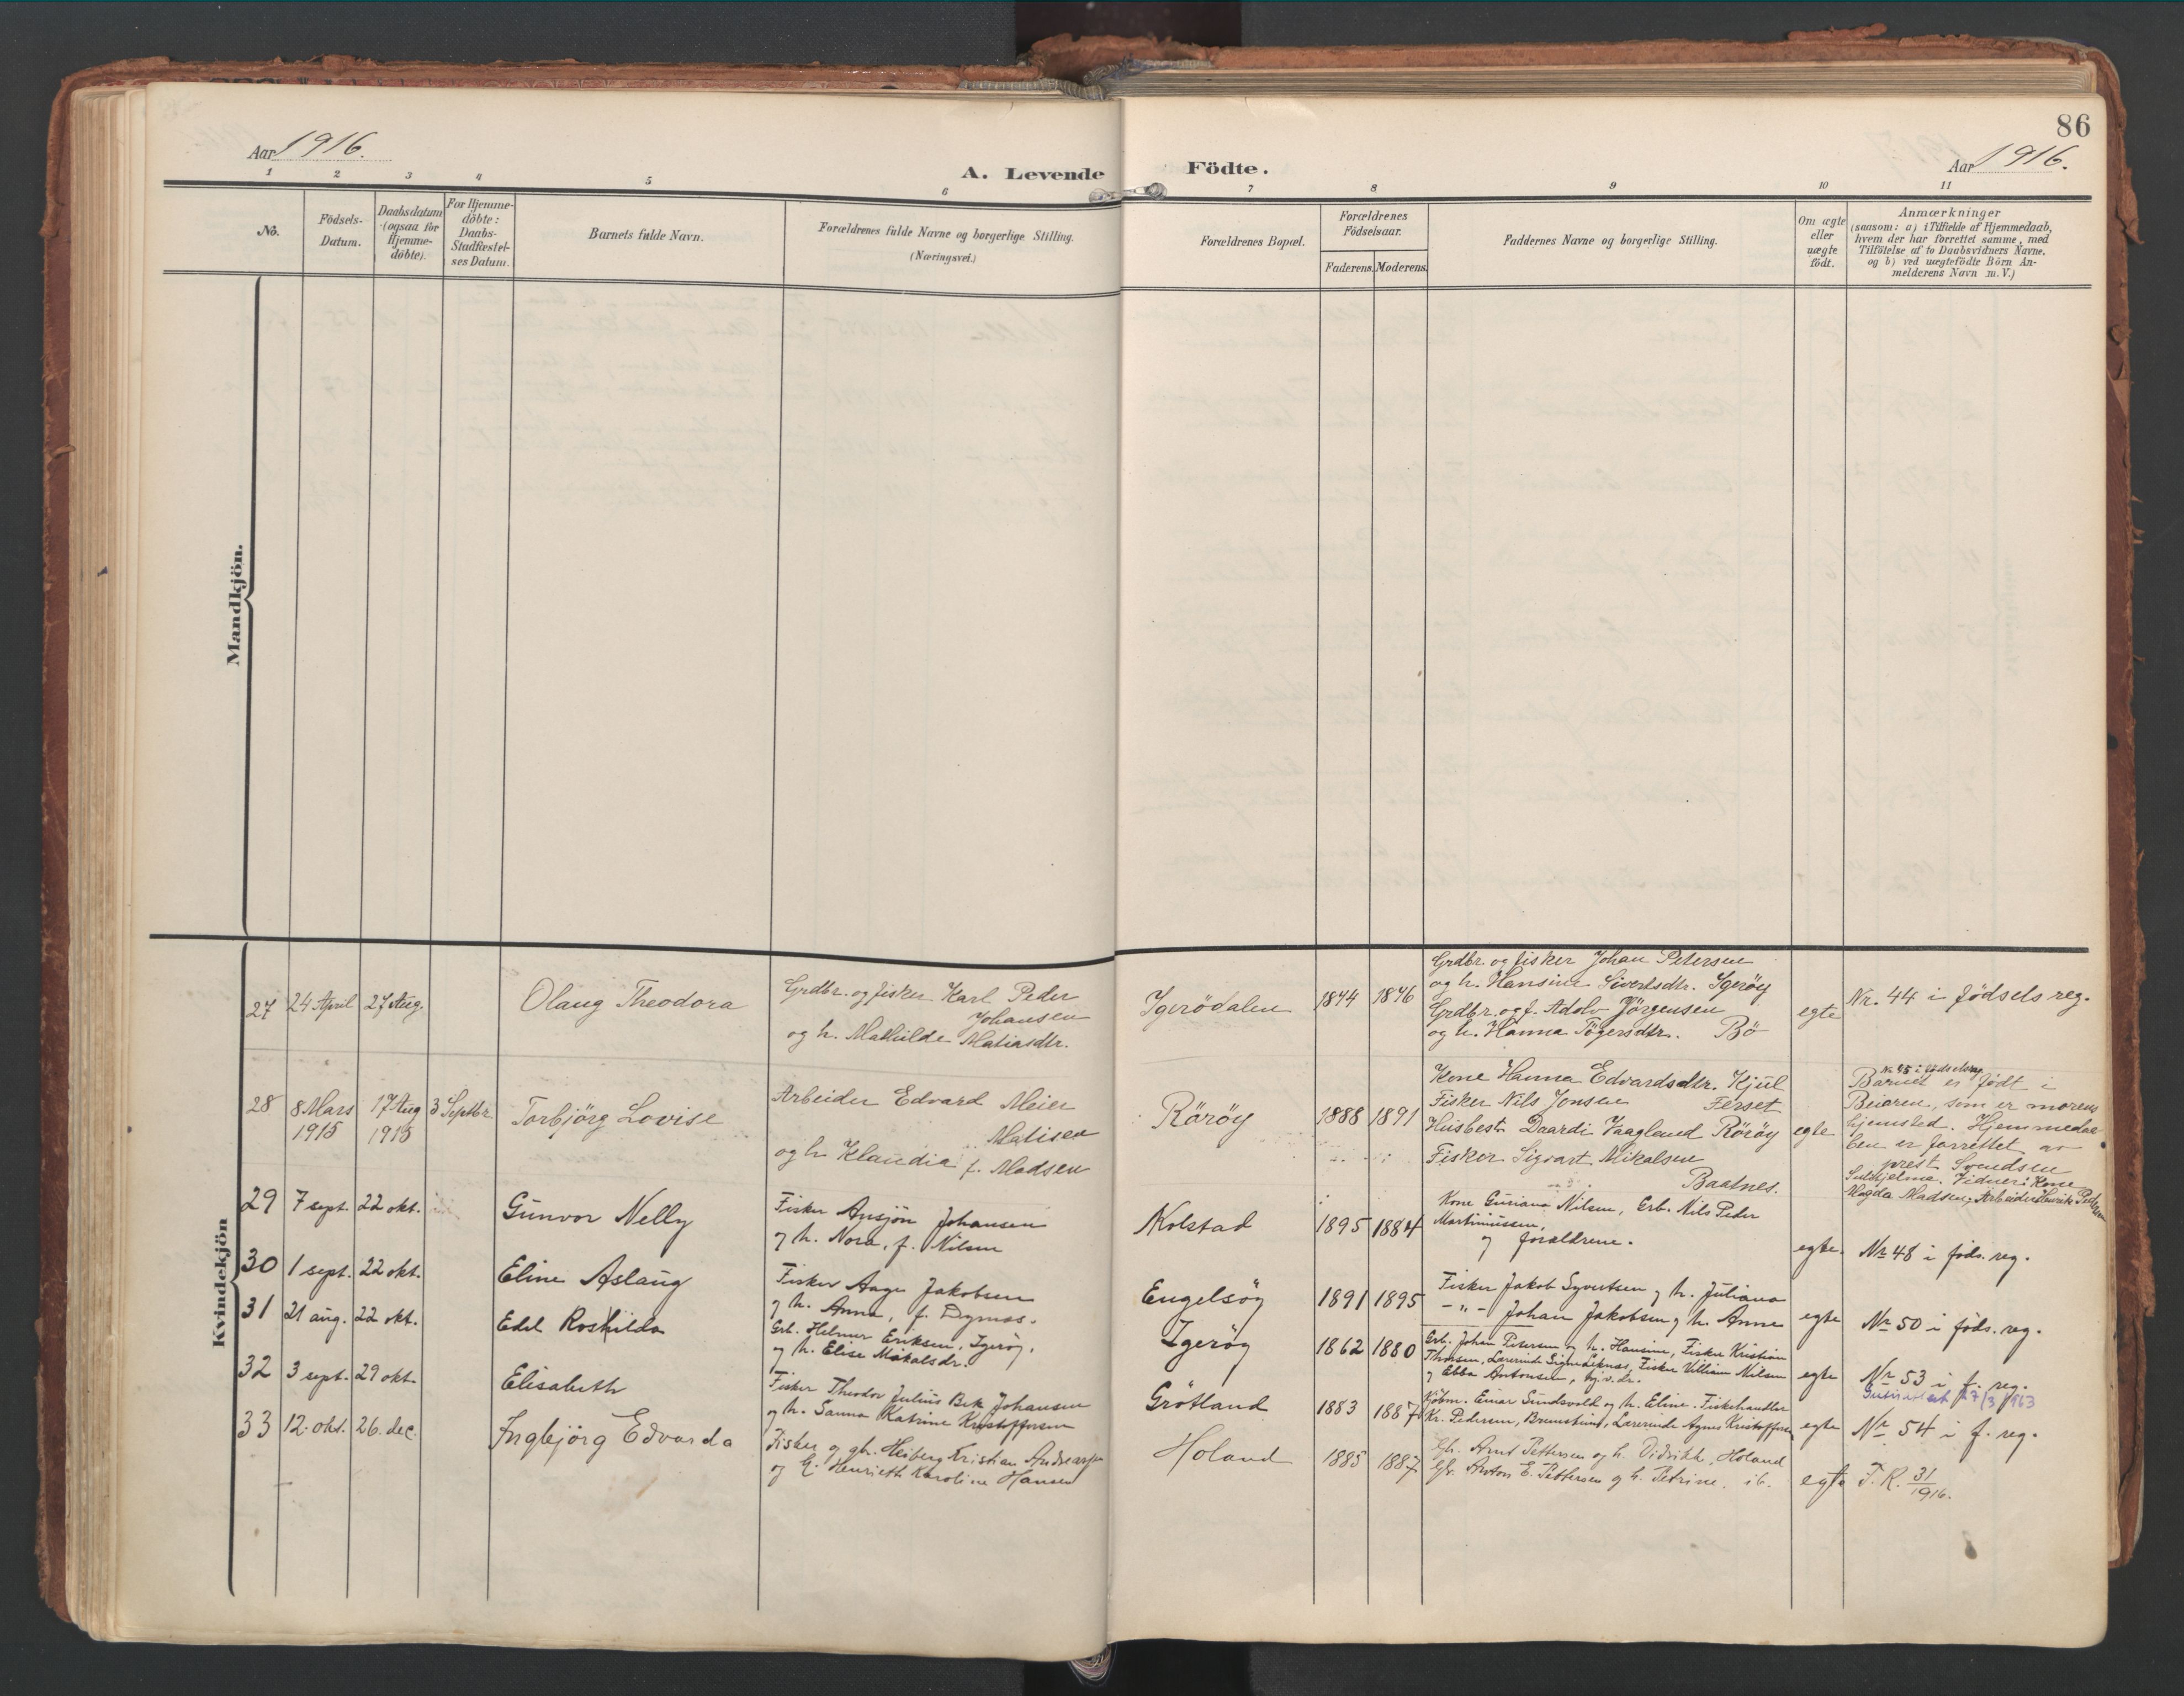 86
Aar 1916.
A. Levende Födte.
Aar 1916.
1 2 3 4 5 6 7 8 9 10 11
No.
Födsels-
Datum.
Daabsdatum
(ogsaa for
Hjemme-
döbte).
For Hjemme-
döbte:
Daabs-
Stadfæstel-
ses Datum.
Barnets fulde Navn.
Forældrenes fulde Navne og borgerlige Stilling.
(Næringsvei.)
Forældrenes Bopæl.
Forældrenes
Födselsaar.
Faderens. Moderens.
Faddernes Navne og borgerlige Stilling.
Om ægte
eller
uægte
födt.
Anmærkninger
(saasom: a) i Tilfælde af Hjemmedaab,
hvem der har forrettet samme, med
Tilföielse af to Daabsvidners Navne,
og b) ved uægtefödte Börn An-
melderens Navn m. V.)
Mandkjön.
Kvindekjön
27 24 April 27 Aug. Olaug Theodora
Grdbr. og fisker Karl Peder
Johansen
og h. Mathilde Matiasdtr.
Igerödalen 1844 1876
Grdbr. og fisker Johan Petersen
og h. Hansine Sivertsdtr. Igeröy
Grdbr. og f. Adolv Jörgensen
og h. Hanna Tögersdtr. Bö
egte Nr. 44 i födsels reg.
28 8 Mars 1915 17 Aug 1915 3 Septbr. Torbjörg Lovise
Arbeider Edvard Meier
Matisen
og h Klaudia f. Madsen
Röröy 1888 1891
Kone Hanna Edvardsdtr. Kjul
Fisker Nils Jonsen Ferset
Husbest. Daardi Vaagland Röröy
Fisker Sigvart Mikalsen
Baatnes.
egte
Nr. 45 i födselsreg
Barnet er födt i
Beiaren, som er morens
hjemsted. Hjemmedaa-
ben er forrettet av
prest Svendsen
Sulitjelma. Vidner: Kone
Magda Madsen, Arbeider Henrik Pedersen
29 7 sept. 22 okt. Gunvor Nelly
Fisker Ansjön Johansen
og h. Nora, f. Nilsen
Kolstad 1895 1884
Kone Guriana Nilsen, Grb. Nils Peder
Martinussen,
og forældrene.
egte. Nr 48 i föds. reg.
30 1 sept. 22 okt. Eline Aslaug
Fisker Aage Jakobsen
og h. Anna, f. Dypnæs.
Engelsöy 1891 1895
Fisker Jakob Syvertsen og h. Juliana
- " - Johan Jakobsen og h. Anne
egte Nr 50 i föds. reg.
31 21 aug. 22 okt. Edel Roshilda
Grb. Helmer Eriksen, Igeröy,
og h. Elise Mikalsdr.
Igeröy 1862 1880
Grb. Johan Petersen og h. Hansine, Fisker Kristian
Thorsen, Lærerinde Signe Leknes, Fisker Villiam Nilsen
og Ebba Antonsen,
egte Nr 53 i f. reg.
32 3 sept. 29 okt. Elisabeth
Fisker Theodor Julius Bek Johansen
og h. Sanna Katrine Kristoffersen
Grötland 1883 1887
Kjöbm. Einar Sundsvold og h. Eline. Fiskehandler
Kr. Pedersen, Lærerinde Agnes Kristoffersen
egte Nr 54 i f. reg.
33 12. okt. 26. dec. Ingbjörg Edvarda
Fisker og gb. Heiberg Kristian Andreassen
og h. Henrieth Karoline Hansen
Holand 1885 1887
Gb. Arnt Pettersen og h. Didrikke, Holand
Gb. Anton E. Pettersen og h. Petrine. ib.
egte F. R. 31/1916.